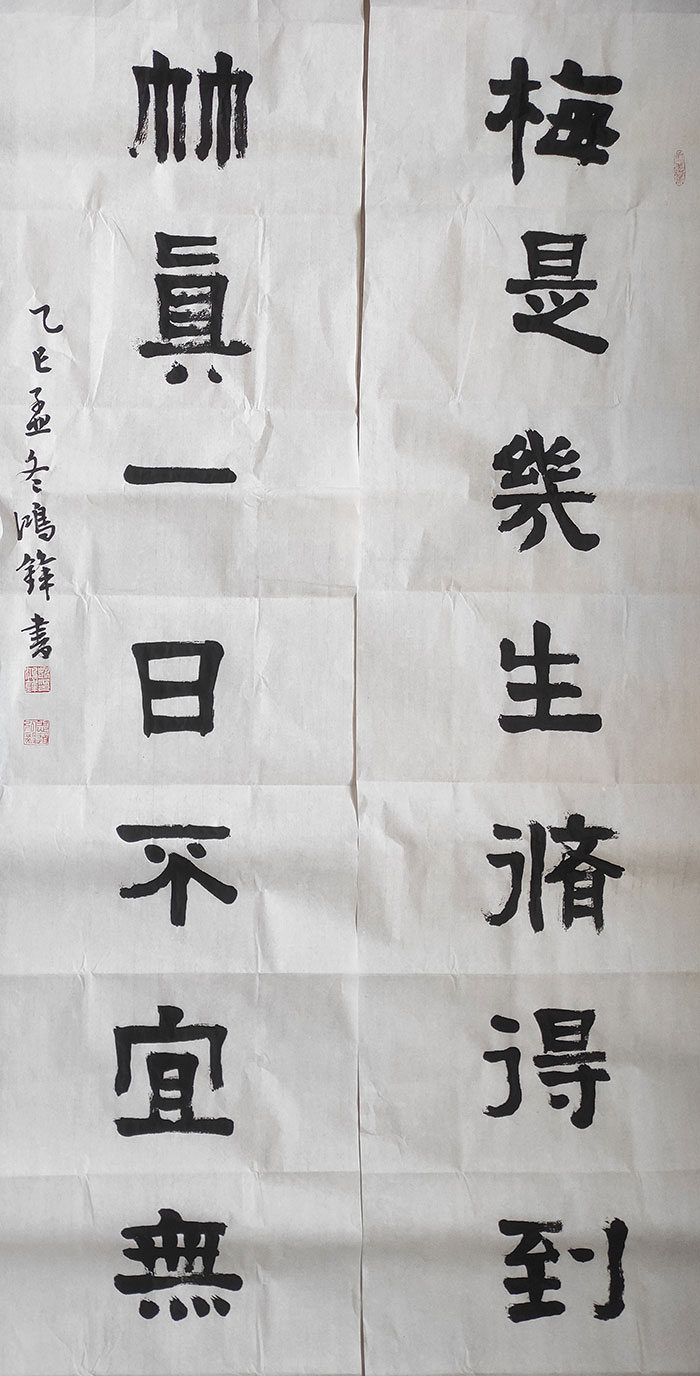 梅是幾生脩得到
竹眞一日不宜無
乙巳孟冬鴻鋒書